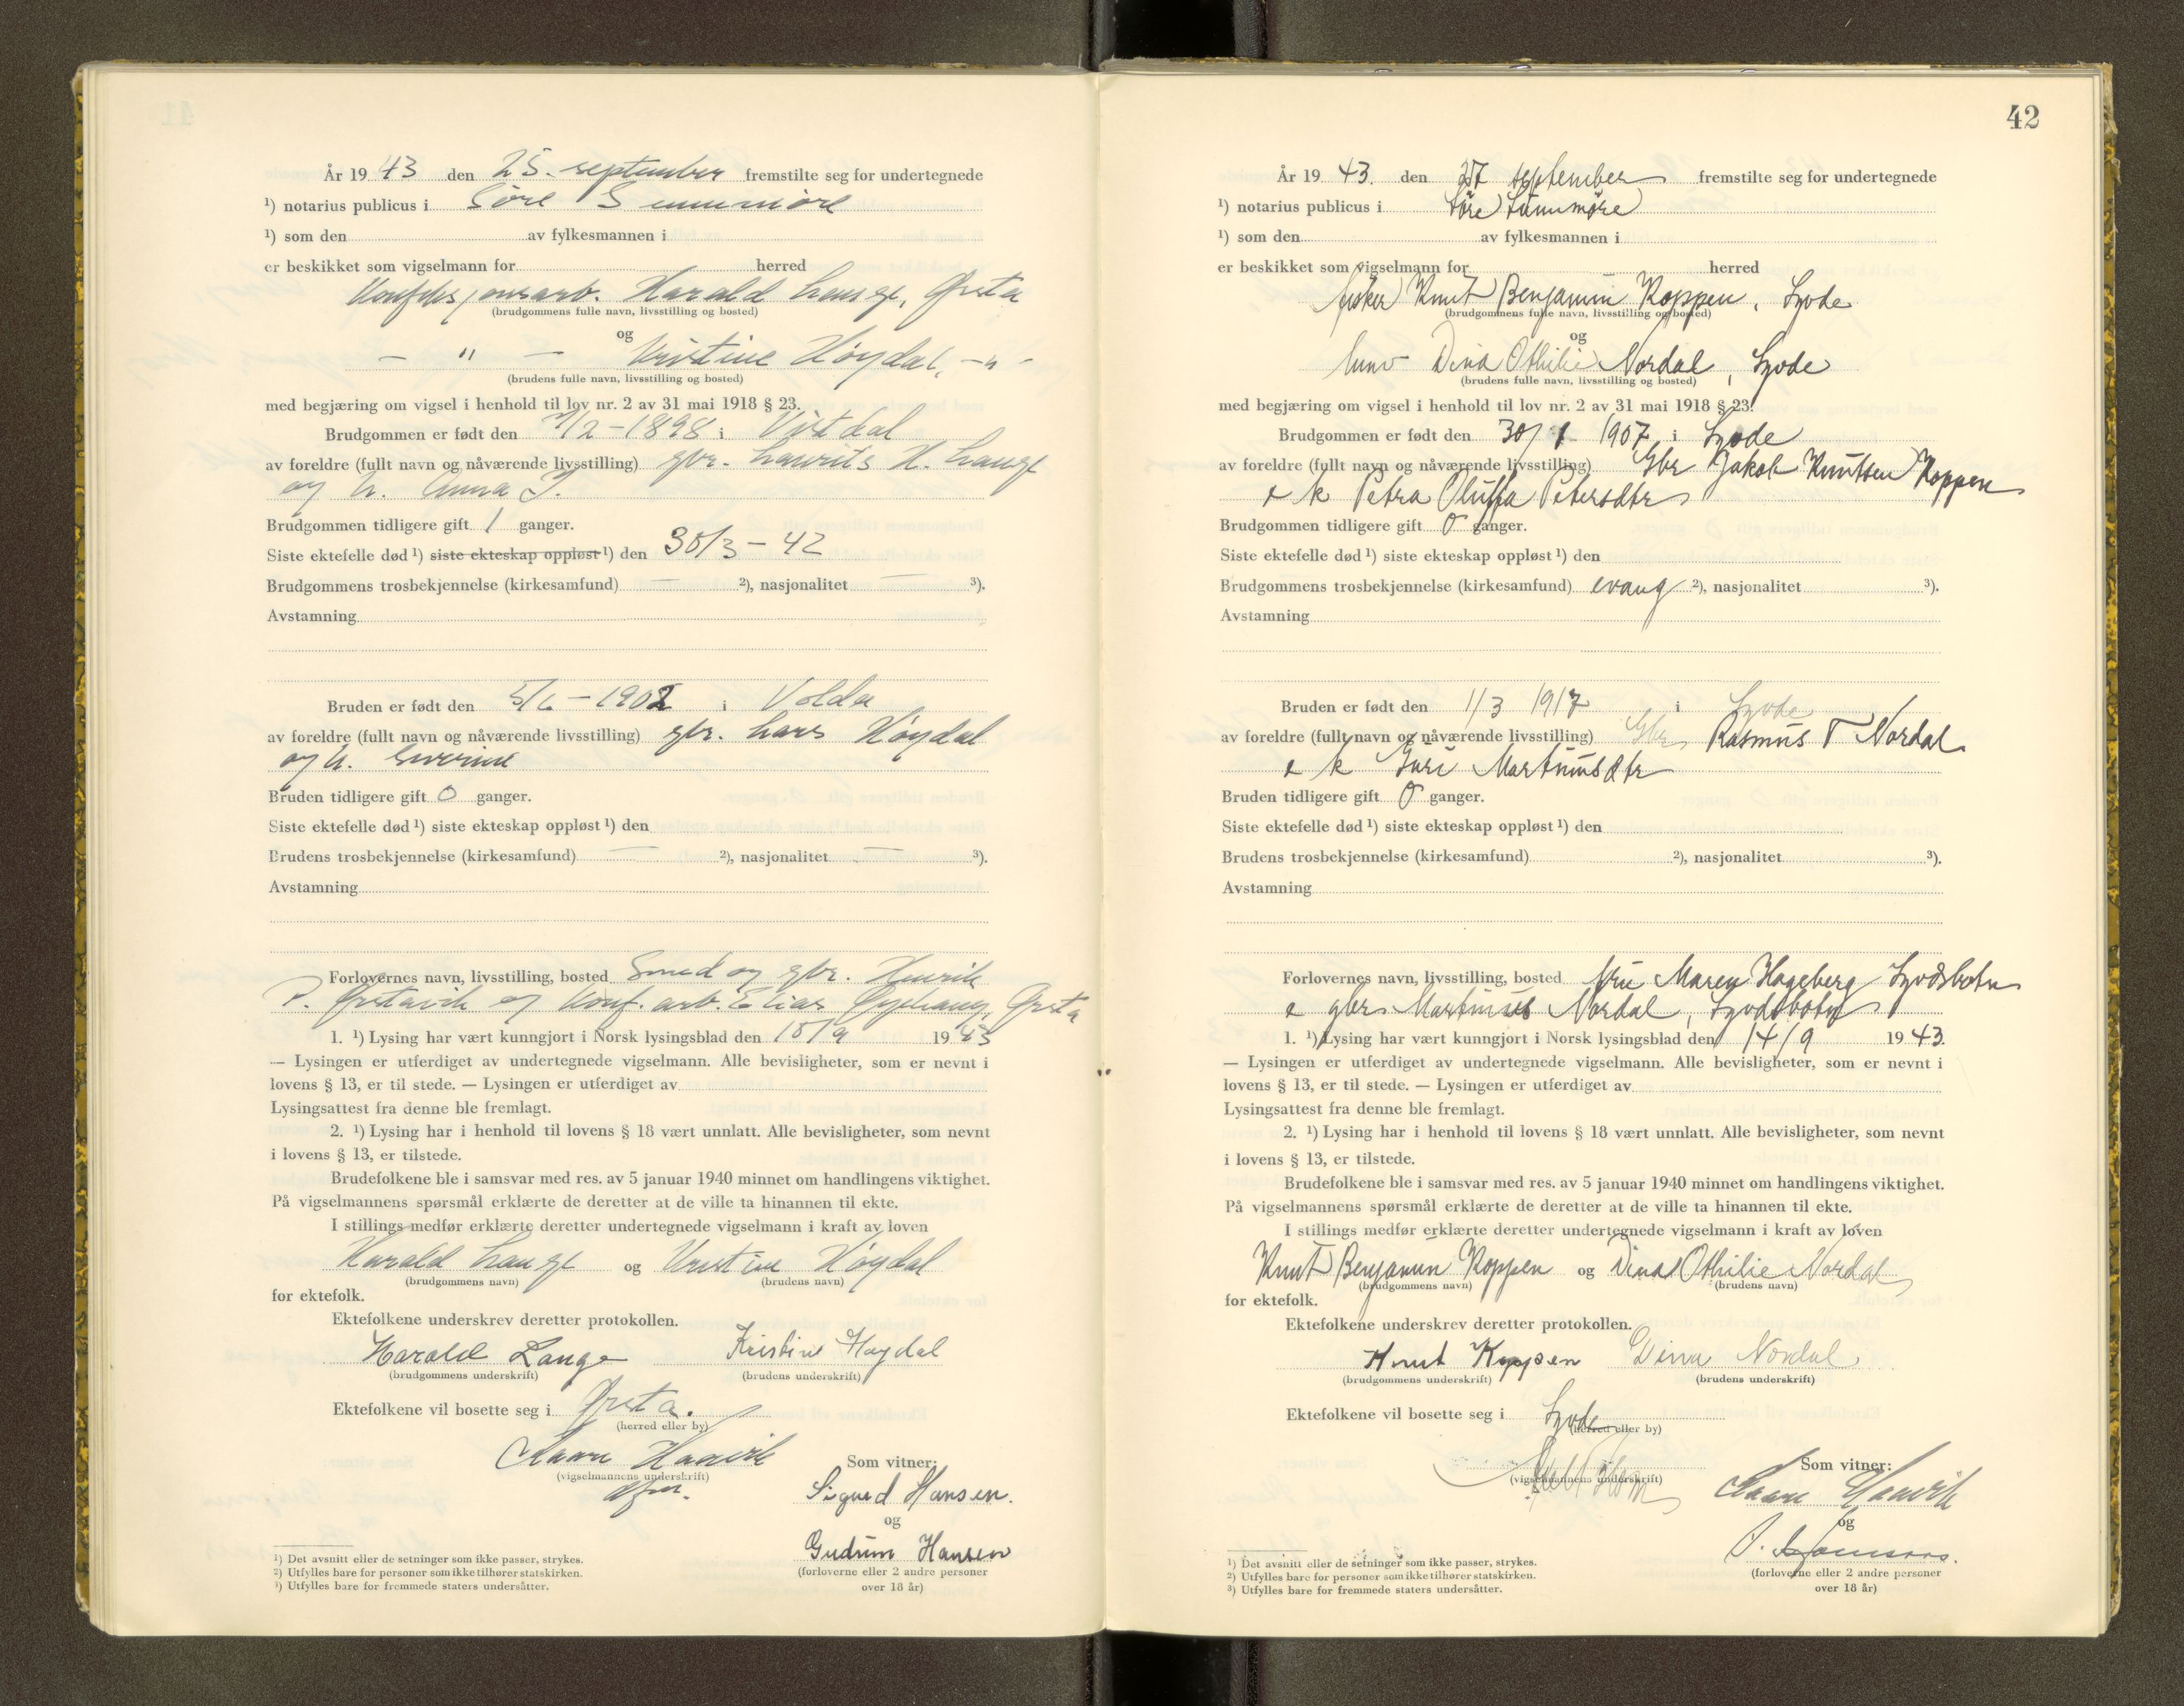 År 19 43 den 25. september fremstilte seg for undertegnede
¹) notarius publicus i Søre Sunnmøre
¹) som den av fylkesmannen i
er beskikket som vigselmann for herred
Konfeksjonsarb. Harald Lange, Ørsta
(brudgommens fulle navn, livsstilling og bosted)
og
— " — Kristine Høydal, — " -
(brudens fulle navn, livsstilling og bosted)
med begjæring om vigsel i henhold til lov nr. 2 av 31 mai 1918 § 23.
Brudgommen er født den /2-1898 i
av foreldre (fullt navn og nåværende livsstilling) gbr. Laurits K. Lange
og h. Anna J.
Brudgommen tidligere gift 1 ganger.
Siste ektefelle død ¹) siste ekteskap oppløst ¹) den 30/3 - 42
Brudgommens trosbekjennelse (kirkesamfund) — ²), nasjonalitet — ³).
Avstamning
Bruden er født den 5/6 - 1902 i Volda
av foreldre (fullt navn og nåværende livsstilling) gbr. Lars Høydal
og h. Severine
Bruden tidligere gift 0 ganger.
Siste ektefelle død ¹) siste ekteskap oppløst ¹) den
Brudens trosbekjennelse (kirkesamfund) — ²), nasjonalitet — ³).
Avstamning
Forlovernes navn, livsstilling, bosted Smed og gbr. Henrik
P. Ørstavik og Konf. arb. Elias Ørsta
1. ¹) Lysing har vært kunngjort i Norsk lysingsblad den 18/9 19 43
— Lysingen er utferdiget av undertegnede vigselmann. Alle bevisligheter, som er nevnt i
lovens § 13, er til stede. — Lysingen er utferdiget av
Lysingsattest fra denne ble fremlagt.
2. ¹) Lysing har i henhold til lovens § 18 vært unnlatt. Alle bevisligheter, som nevnt
i lovens § 13, er tilstede.
Brudefolkene ble i samsvar med res. av 5 januar 1940 minnet om handlingens viktighet.
På vigselmannens spørsmål erklærte de deretter at de ville ta hinannen til ekte.
I stillings medfør erklærte deretter undertegnede vigselmann i kraft av loven
Harald Lange og Kristine Høydal
(brudgommens navn) (brudens navn)
for ektefolk.
Ektefolkene underskrev deretter protokollen.
Harald Lange Kristine Høydal
(brudgommens underskrift) (brudens underskrift)
Ektefolkene vil bosette seg i Ørsta.
(herred eller by)
Haavik
(vigselmannens underskrift)
Som vitner:
Sigurd Hansen.
og
Gudrun Hansen
(forloverne eller 2 andre personer
over 18 år)
¹) Det avsnitt eller de setninger som ikke passer, strykes.
²) Utfylles bare for personer som ikke tilhører statskirken.
³) Utfylles bare for fremmede staters undersåtter.
42
År 19 43. den 27 september fremstilte seg for undertegnede
¹) notarius publicus i Søre Sunnmøre
¹) som den av fylkesmannen i
er beskikket som vigselmann for herred
fisker Knut Benjamin Koppen, Syvde
(brudgommens fulle navn, livsstilling og bosted)
og
Dina Othilie Nordal, Syvde
(brudens fulle navn, livsstilling og bosted)
med begjæring om vigsel i henhold til lov nr. 2 av 31 mai 1918 § 23.
Brudgommen er født den 30/1 1907 i Syvde
av foreldre (fullt navn og nåværende livsstilling) Gbr Jakob Knutsen Koppen
o k Petra Oluffa Petersdtr
Brudgommen tidligere gift 0 ganger.
Siste ektefelle død ¹) siste ekteskap oppløst ¹) den
Brudgommens trosbekjennelse (kirkesamfund) evang ²), nasjonalitet ³).
Avstamning
Bruden er født den 1/3 1917 i Syvde
av foreldre (fullt navn og nåværende livsstilling) Gbr Rasmus T Nordal
o k Guri Martinusdtr
Bruden tidligere gift 0 ganger.
Siste ektefelle død ¹) siste ekteskap oppløst ¹) den
Brudens trosbekjennelse (kirkesamfund) ²), nasjonalitet ³).
Avstamning
Forlovernes navn, livsstilling, bosted Fru Maren Hageberg Syvdsbotn
o gbr Martinus Nordal, Syvdsbotn
1. ¹) Lysing har vært kunngjort i Norsk lysingsblad den 14/9 19 43.
— Lysingen er utferdiget av undertegnede vigselmann. Alle bevisligheter, som er nevnt i
lovens § 13, er til stede. — Lysingen er utferdiget av
Lysingsattest fra denne ble fremlagt.
2. ¹) Lysing har i henhold til lovens § 18 vært unnlatt. Alle bevisligheter, som nevnt
i lovens § 13, er tilstede.
Brudefolkene ble i samsvar med res. av 5 januar 1940 minnet om handlingens viktighet.
På vigselmannens spørsmål erklærte de deretter at de ville ta hinannen til ekte.
I stillings medfør erklærte deretter undertegnede vigselmann i kraft av loven
Knut Benjamin Koppen og Dina Othilie Nordal
(brudgommens navn) (brudens navn)
for ektefolk.
Ektefolkene underskrev deretter protokollen.
Knut Koppen Dina Nordal
(brudgommens underskrift) (brudens underskrift)
Ektefolkene vil bosette seg i Syvde
(herred eller by)
(vigselmannens underskrift)
Som vitner:
Haavik
og
(forloverne eller 2 andre personer
over 18 år)
¹) Det avsnitt eller de setninger som ikke passer, strykes.
²) Utfylles bare for personer som ikke tilhører statskirken.
³) Utfylles bare for fremmede staters undersåtter.